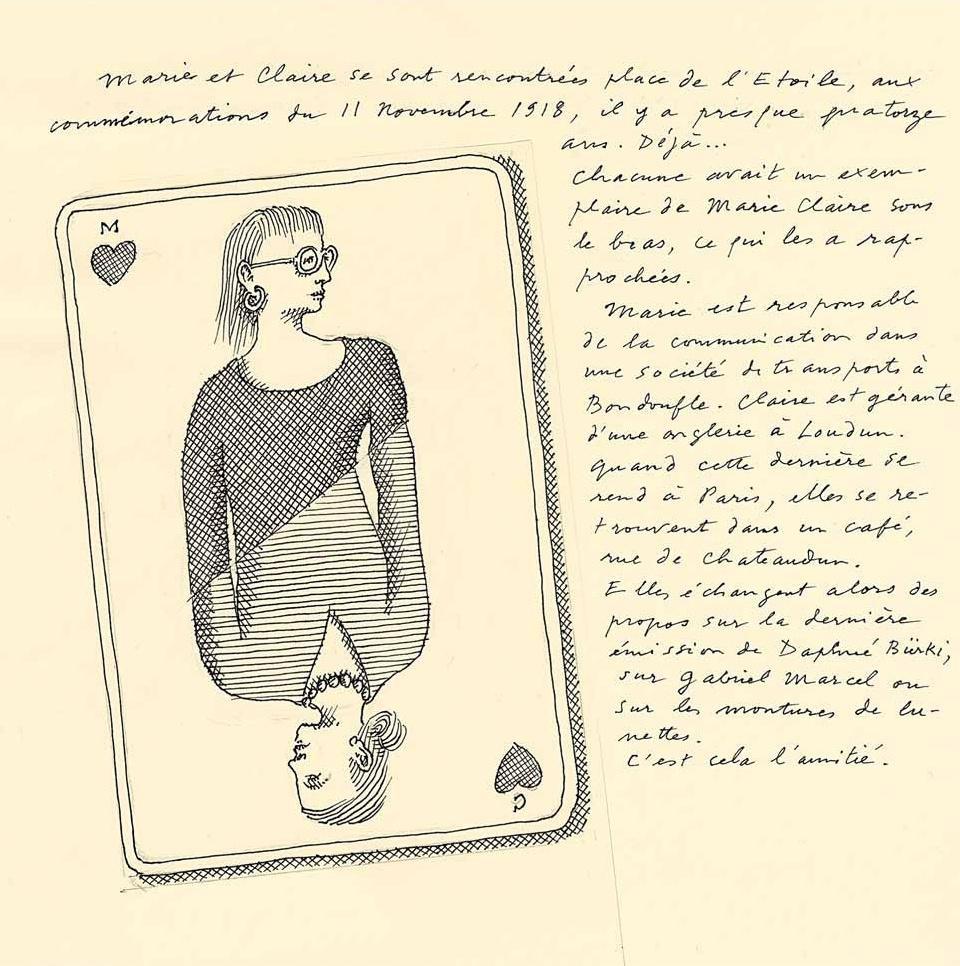 Marie et Claire se sont rencontrées place de l'Etoile, aux
commémorations du 11 Novembre 1918, il y a presque quatorze
ans. Déjà...
Chacune avait un exem-
plaire de Marie Claire sous
le bras, ce qui les a rap-
prochées.
Marie est responsable
de la communication dans
une société de transports à
Bondoufle. Claire est gérante
d'une onglerie à Loudun.
Quand cette dernière se
rend à Paris, elles se re-
trouvent dans un café,
rue de Chateaudun.
Elles échangent alors des
propos sur la dernière
émission de Daphné Bürki,
sur Gabriel Marcel ou
sur les montures de lu-
nettes.
C'est cela l'amitié.
M
C